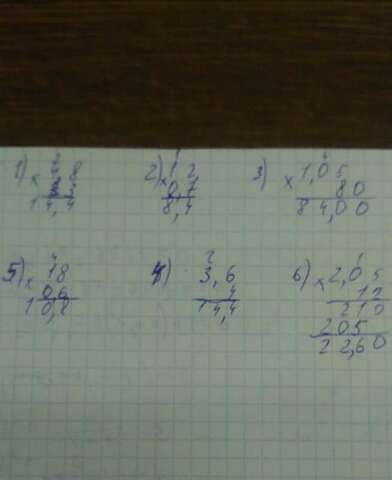 1)
× 8
14,4
2) 1
× 12
0,7
8,4
3) 4
× 1,05
80
84,00
5) 4
× 18
0,6
10,8
4) 2
3,6
4
14,4
6) 1
× 2,05
12
210
205
22,60